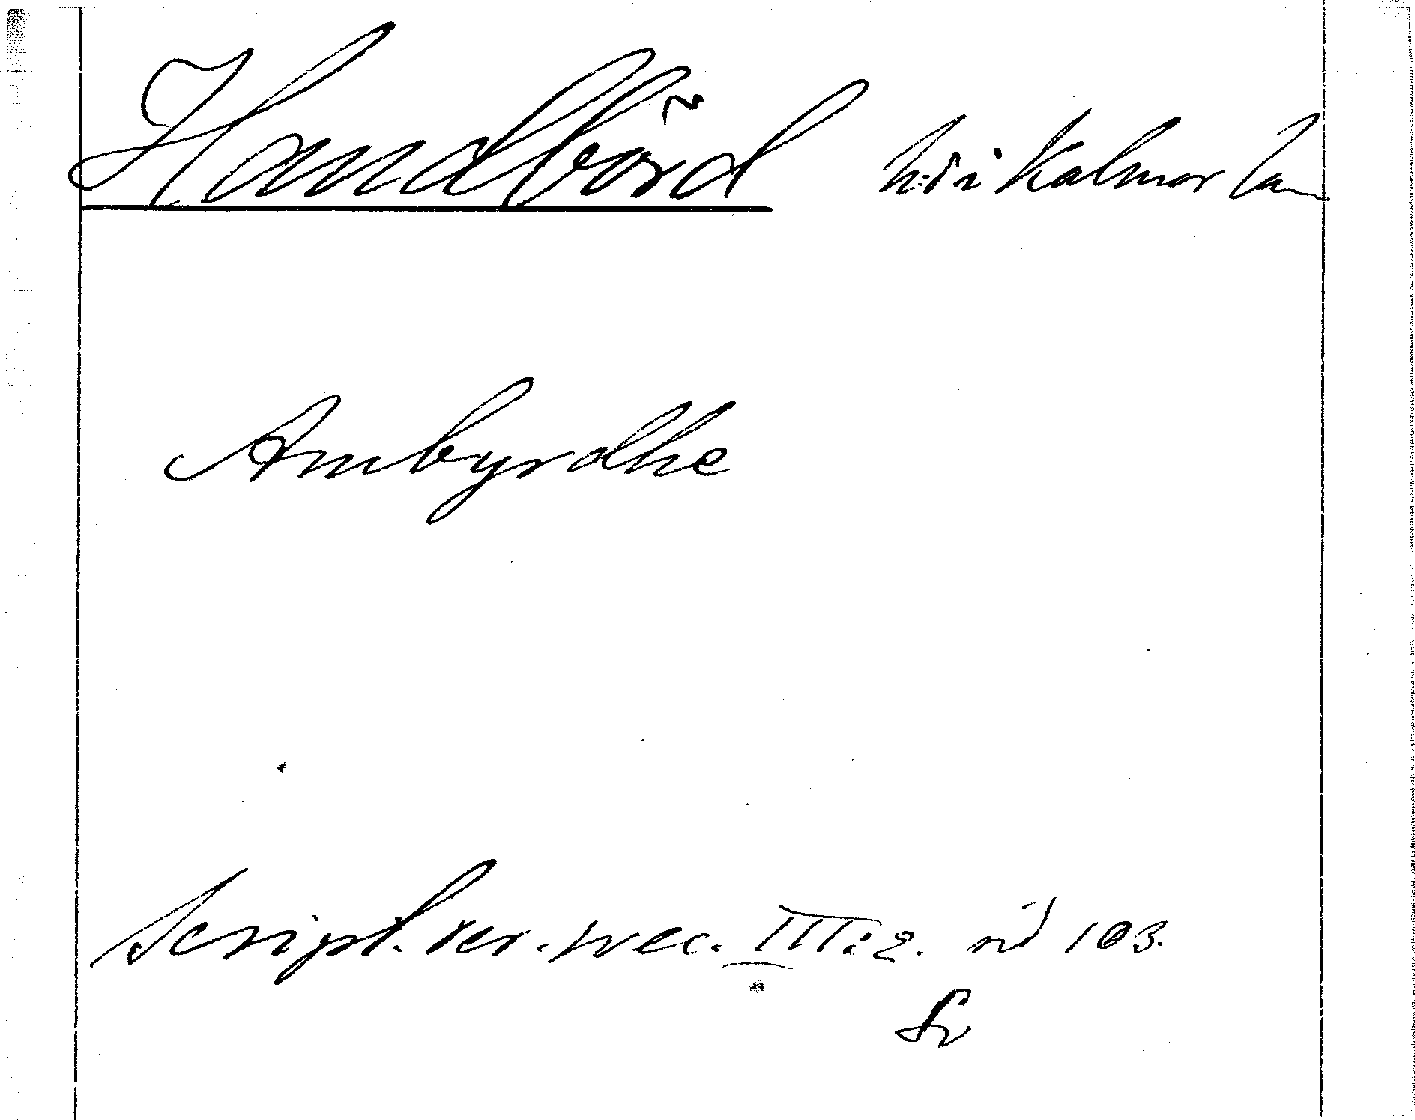 Handbörd hd i Kalmar län
Ambyrdhe
Script. rer. svec. III:2. sid 103.